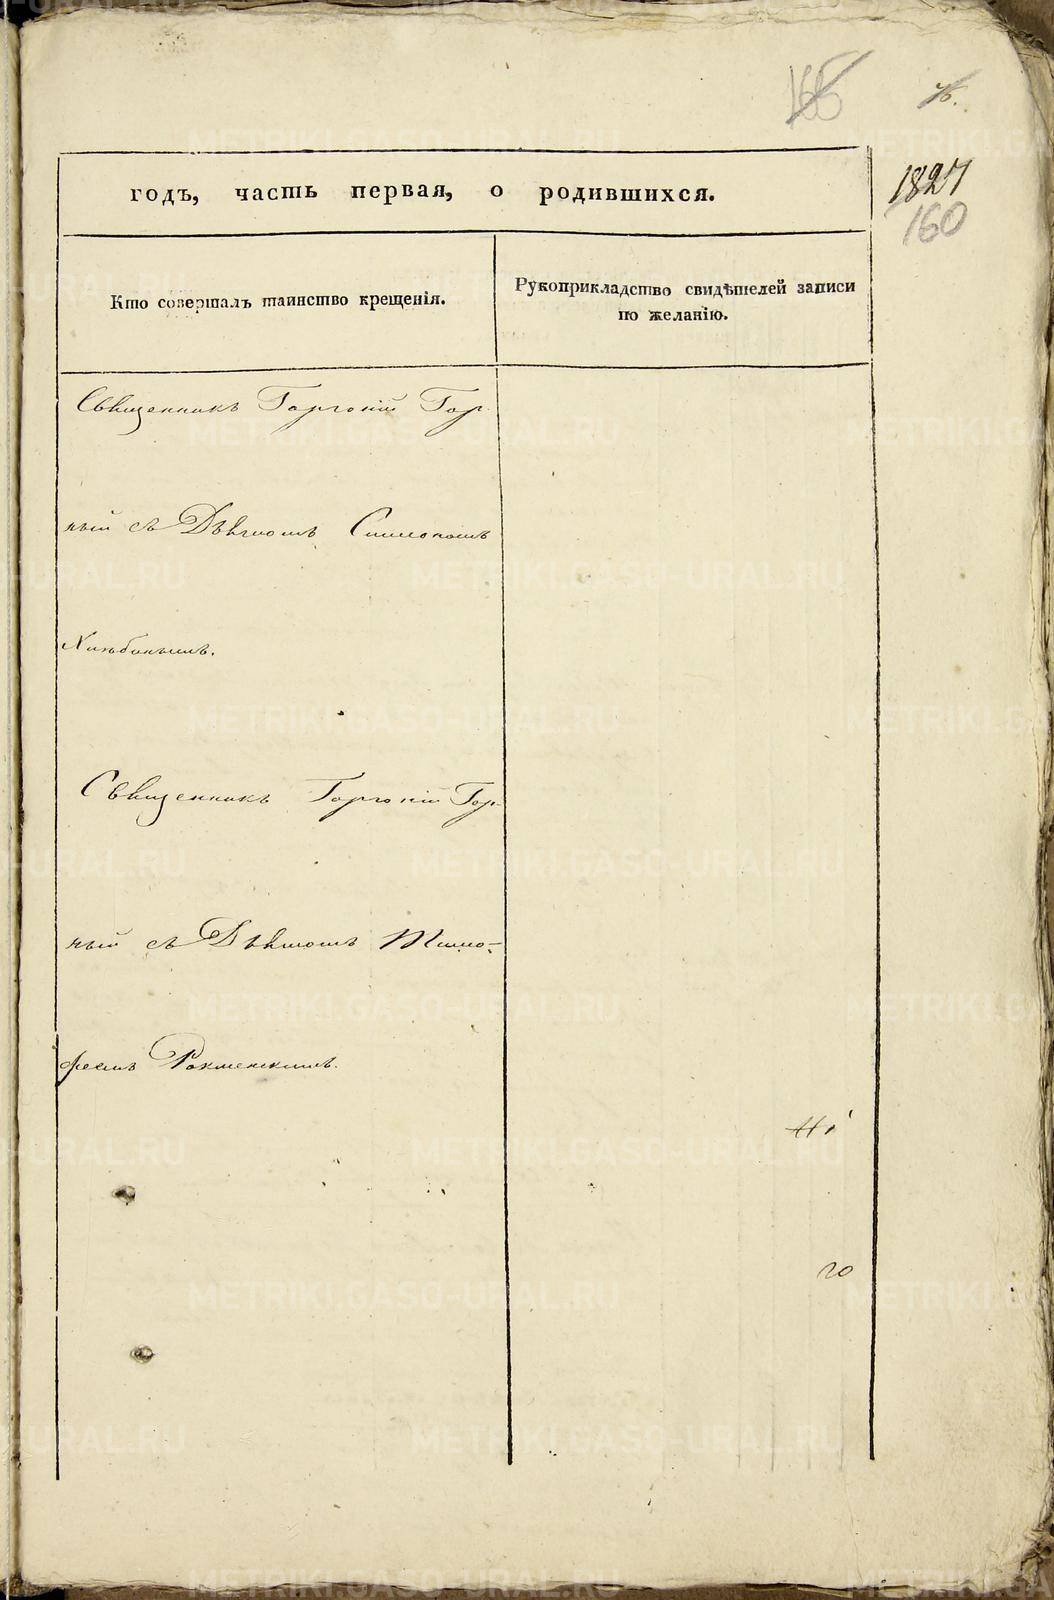 165
1827
160
годъ, часть первая, о родившихся.
Кто совершалъ таинство крещенія.
Рукоприкладство свидѣтелей записи
по желанію.
Священникъ Гор-
ный съ Дьякомъ Симеономъ
Священникъ Гор-
ный съ Дьякомъ Тимо-
феемъ
20
METRIKI.GASO-URAL.RU